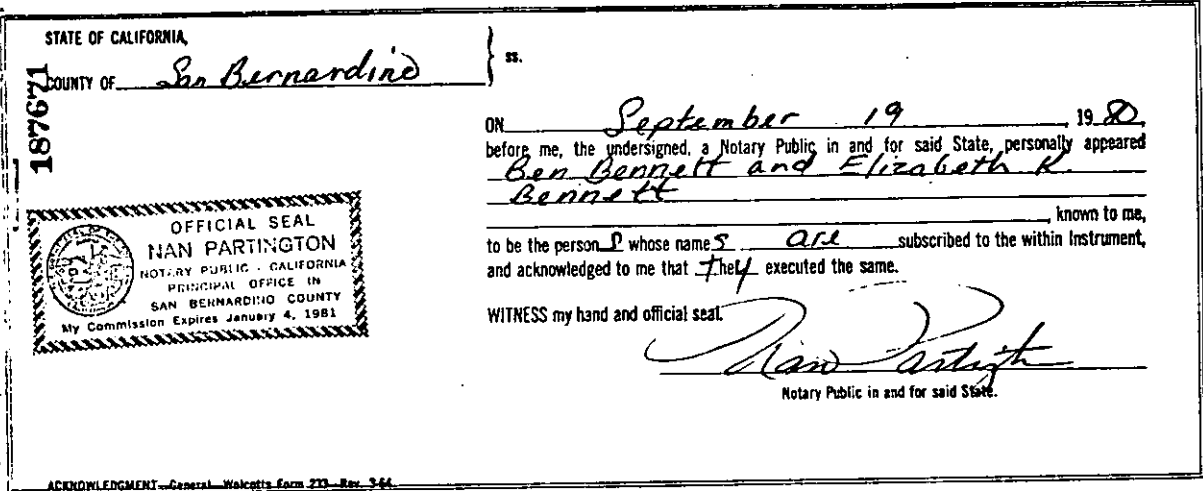 STATE OF CALIFORNIA,
COUNTY OF San Bernardino } ss.
187671
ON September 19 1980,
before me, the undersigned, a Notary Public in and for said State, personally appeared
Ben Bennett and Elizabeth K.
Bennett
, known to me,
to be the person s whose name s are subscribed to the within Instrument,
and acknowledged to me that They executed the same.
WITNESS my hand and official seal.
Nan Partington
Notary Public in and for said State.
OFFICIAL SEAL
NAN PARTINGTON
NOTARY PUBLIC - CALIFORNIA
PRINCIPAL OFFICE IN
SAN BERNARDINO COUNTY
My Commission Expires January 4, 1981
ACKNOWLEDGMENT—General—Wolcotts Form 233—Rev. 3-64